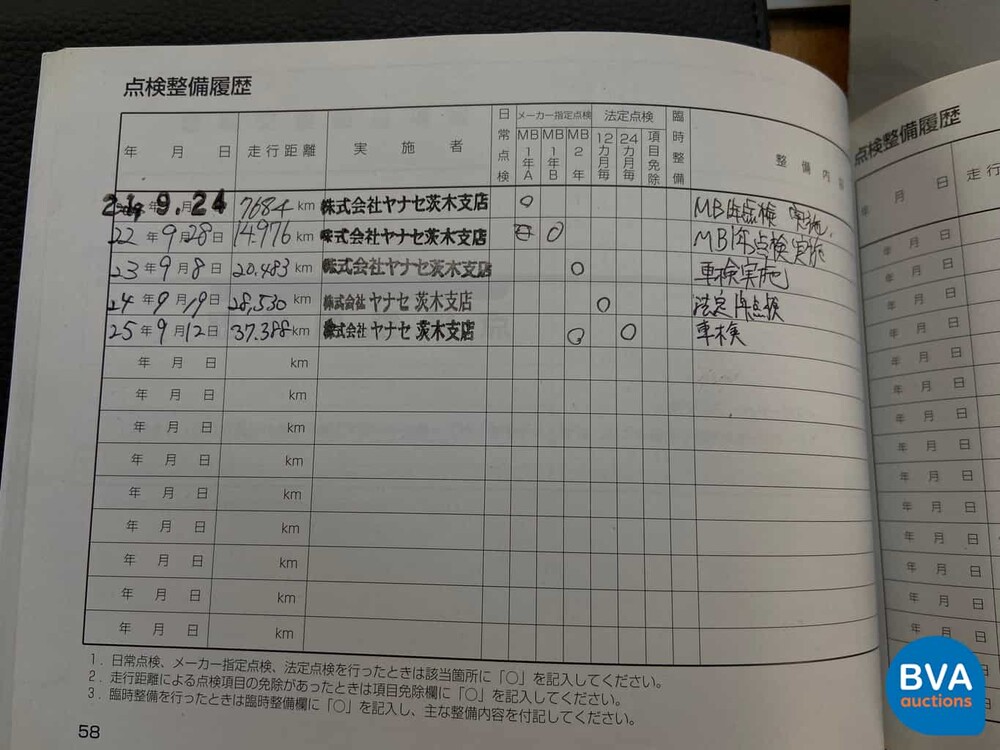 点検整備履歴
年 月 日 走行距離 実施者 日常点検 メーカー指定点検 法定点検 臨時整備 整備内容
MB1年A MB1年B MB2年 12カ月毎 24カ月毎 項目免除
21 9.24 7684 km 株式会社ヤナセ茨木支店 ○ MB1年点検 実施
22年9月28日 14976 km 株式会社ヤナセ茨木支店 ○ MB1年点検実施
23年9月8日 20,483 km 株式会社ヤナセ茨木支店 ○ 車検実施
24年9月19日 28,530 km 株式会社 ヤナセ 茨木支店 ○ 法定 点検
25年9月12日 37.388 km 株式会社 ヤナセ 茨木支店 ○ ○ 車検
年 月 日 km
年 月 日 km
年 月 日 km
年 月 日 km
年 月 日 km
年 月 日 km
年 月 日 km
年 月 日 km
年 月 日 km
1. 日常点検、メーカー指定点検、法定点検を行ったときは該当箇所に「○」を記入してください。
2. 走行距離による点検項目の免除があったときは項目免除欄に「○」を記入してください。
3. 臨時整備を行ったときは臨時整備欄に「○」を記入し、主な整備内容を付記してください。
58
点検整備履歴
年 月 日 走行
年 月 日
年 月 日
年 月 日
年 月 日
年 月 日
年 月 日
年 月 日
年 月 日
年 月 日
年 月 日
年 月 日
年 月 日
BVA
auctions